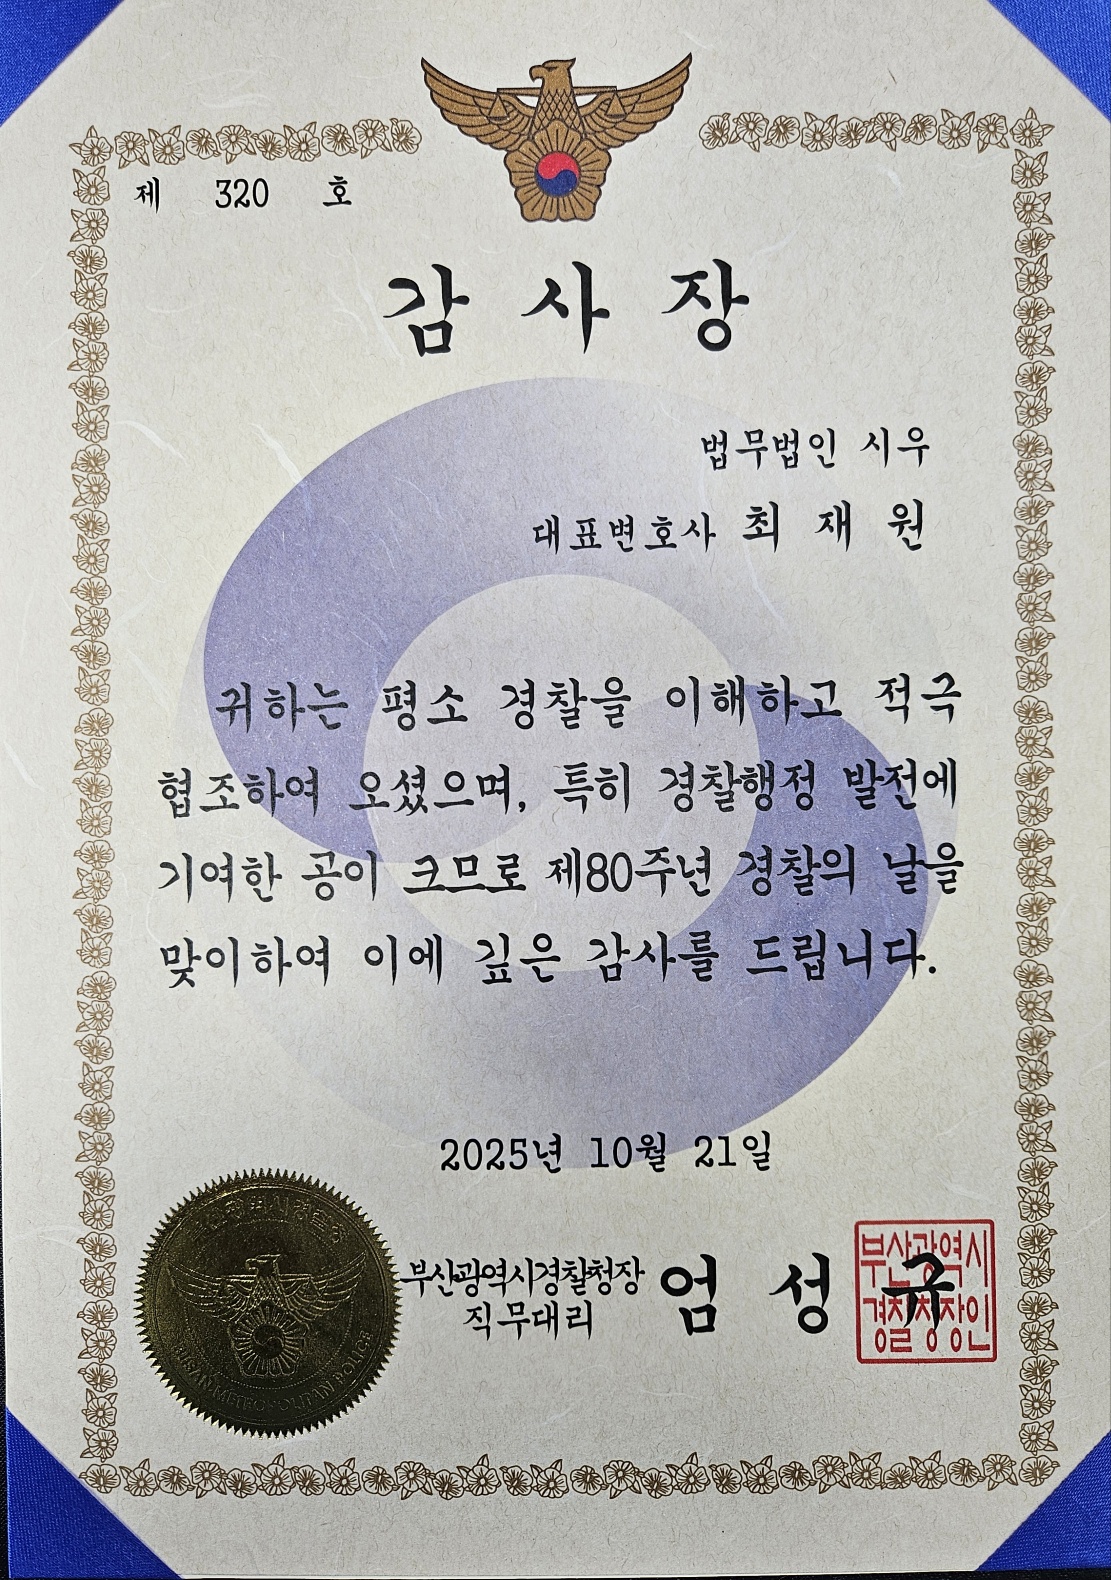 제 320 호
감 사 장
법무법인 시우
대표변호사 최 재 원
귀하는 평소 경찰을 이해하고 적극
협조하여 오셨으며, 특히 경찰행정 발전에
기여한 공이 크므로 제80주년 경찰의 날을
맞이하여 이에 깊은 감사를 드립니다.
2025년 10월 21일
부산광역시경찰청장
직무대리
엄 성 규
부산광역시
경찰청장인
BUSAN METROPOLITAN POLICE